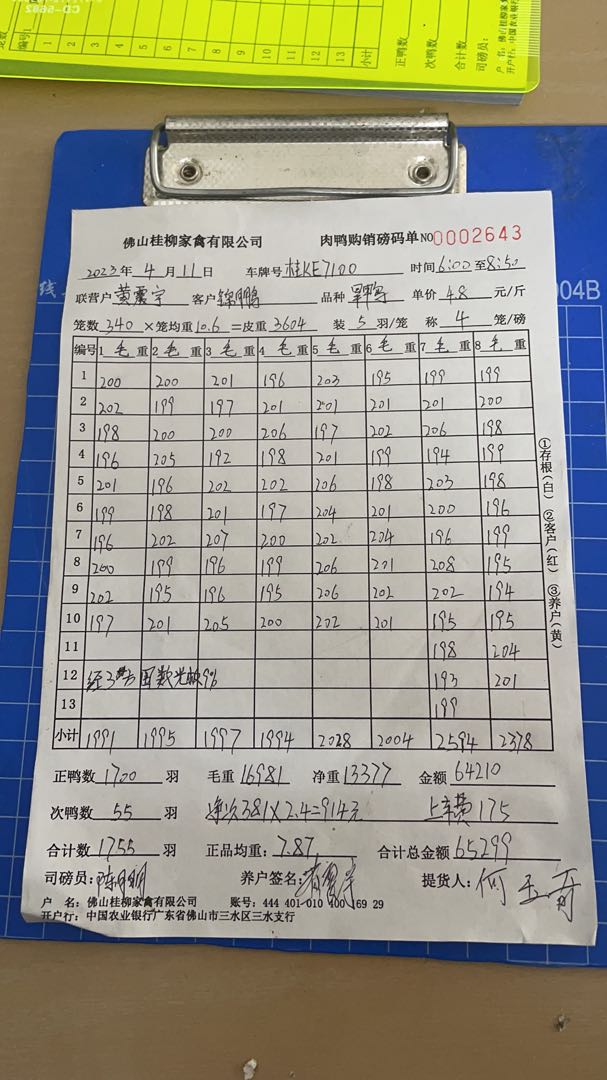 CD-5682
编号: 1 2 3 4 5 6 7 8 9 10 11 12 13 小计
正鸭数
次鸭数
合计数
司磅员:
户 名: 佛山桂柳家禽
开户行: 中国农业银行
004B
佛山桂柳家禽有限公司 肉鸭购销磅码单 NO 0002643
2023年 4 月 11 日 车牌号 桂KE7100 时间 6:00 至 8:50
联营户 黄震宇 客户 锦鹏 品种 单价 4.8 元/斤
笼数 340 ×笼均重 10.6 =皮重 3604 装 5 羽/笼 称 4 笼/磅
编号 1 毛 重 2 毛 重 3 毛 重 4 毛 重 5 毛 重 6 毛 重 7 毛 重 8 毛 重
1 200 200 201 196 203 195 199 199
2 202 199 197 201 201 201 201 200
3 198 200 200 206 197 202 206 198
4 196 205 192 198 201 199 194 199
5 201 196 202 202 206 198 203 198
6 199 198 201 197 204 201 200 196
7 196 202 207 200 202 204 196 199
8 200 199 196 199 206 201 208 195
9 202 195 196 195 206 202 202 194
10 197 201 205 200 202 201 195 195
11 198 204
12 193 201
13 199
小计 1991 1995 1997 1994 2028 2004 2594 2378
①存根(白) ②客户(红) ③养户(黄)
正鸭数 1700 羽 毛重 16981 净重 13377 金额 64210
次鸭数 55 羽 净次381×2.4=914元 上车费175
合计数 1755 羽 正品均重: 7.87 合计总金额 65299
司磅员: 养户签名: 提货人: 何
户 名: 佛山桂柳家禽有限公司 账号: 444 401 010 400 169 29
开户行: 中国农业银行广东省佛山市三水区三水支行